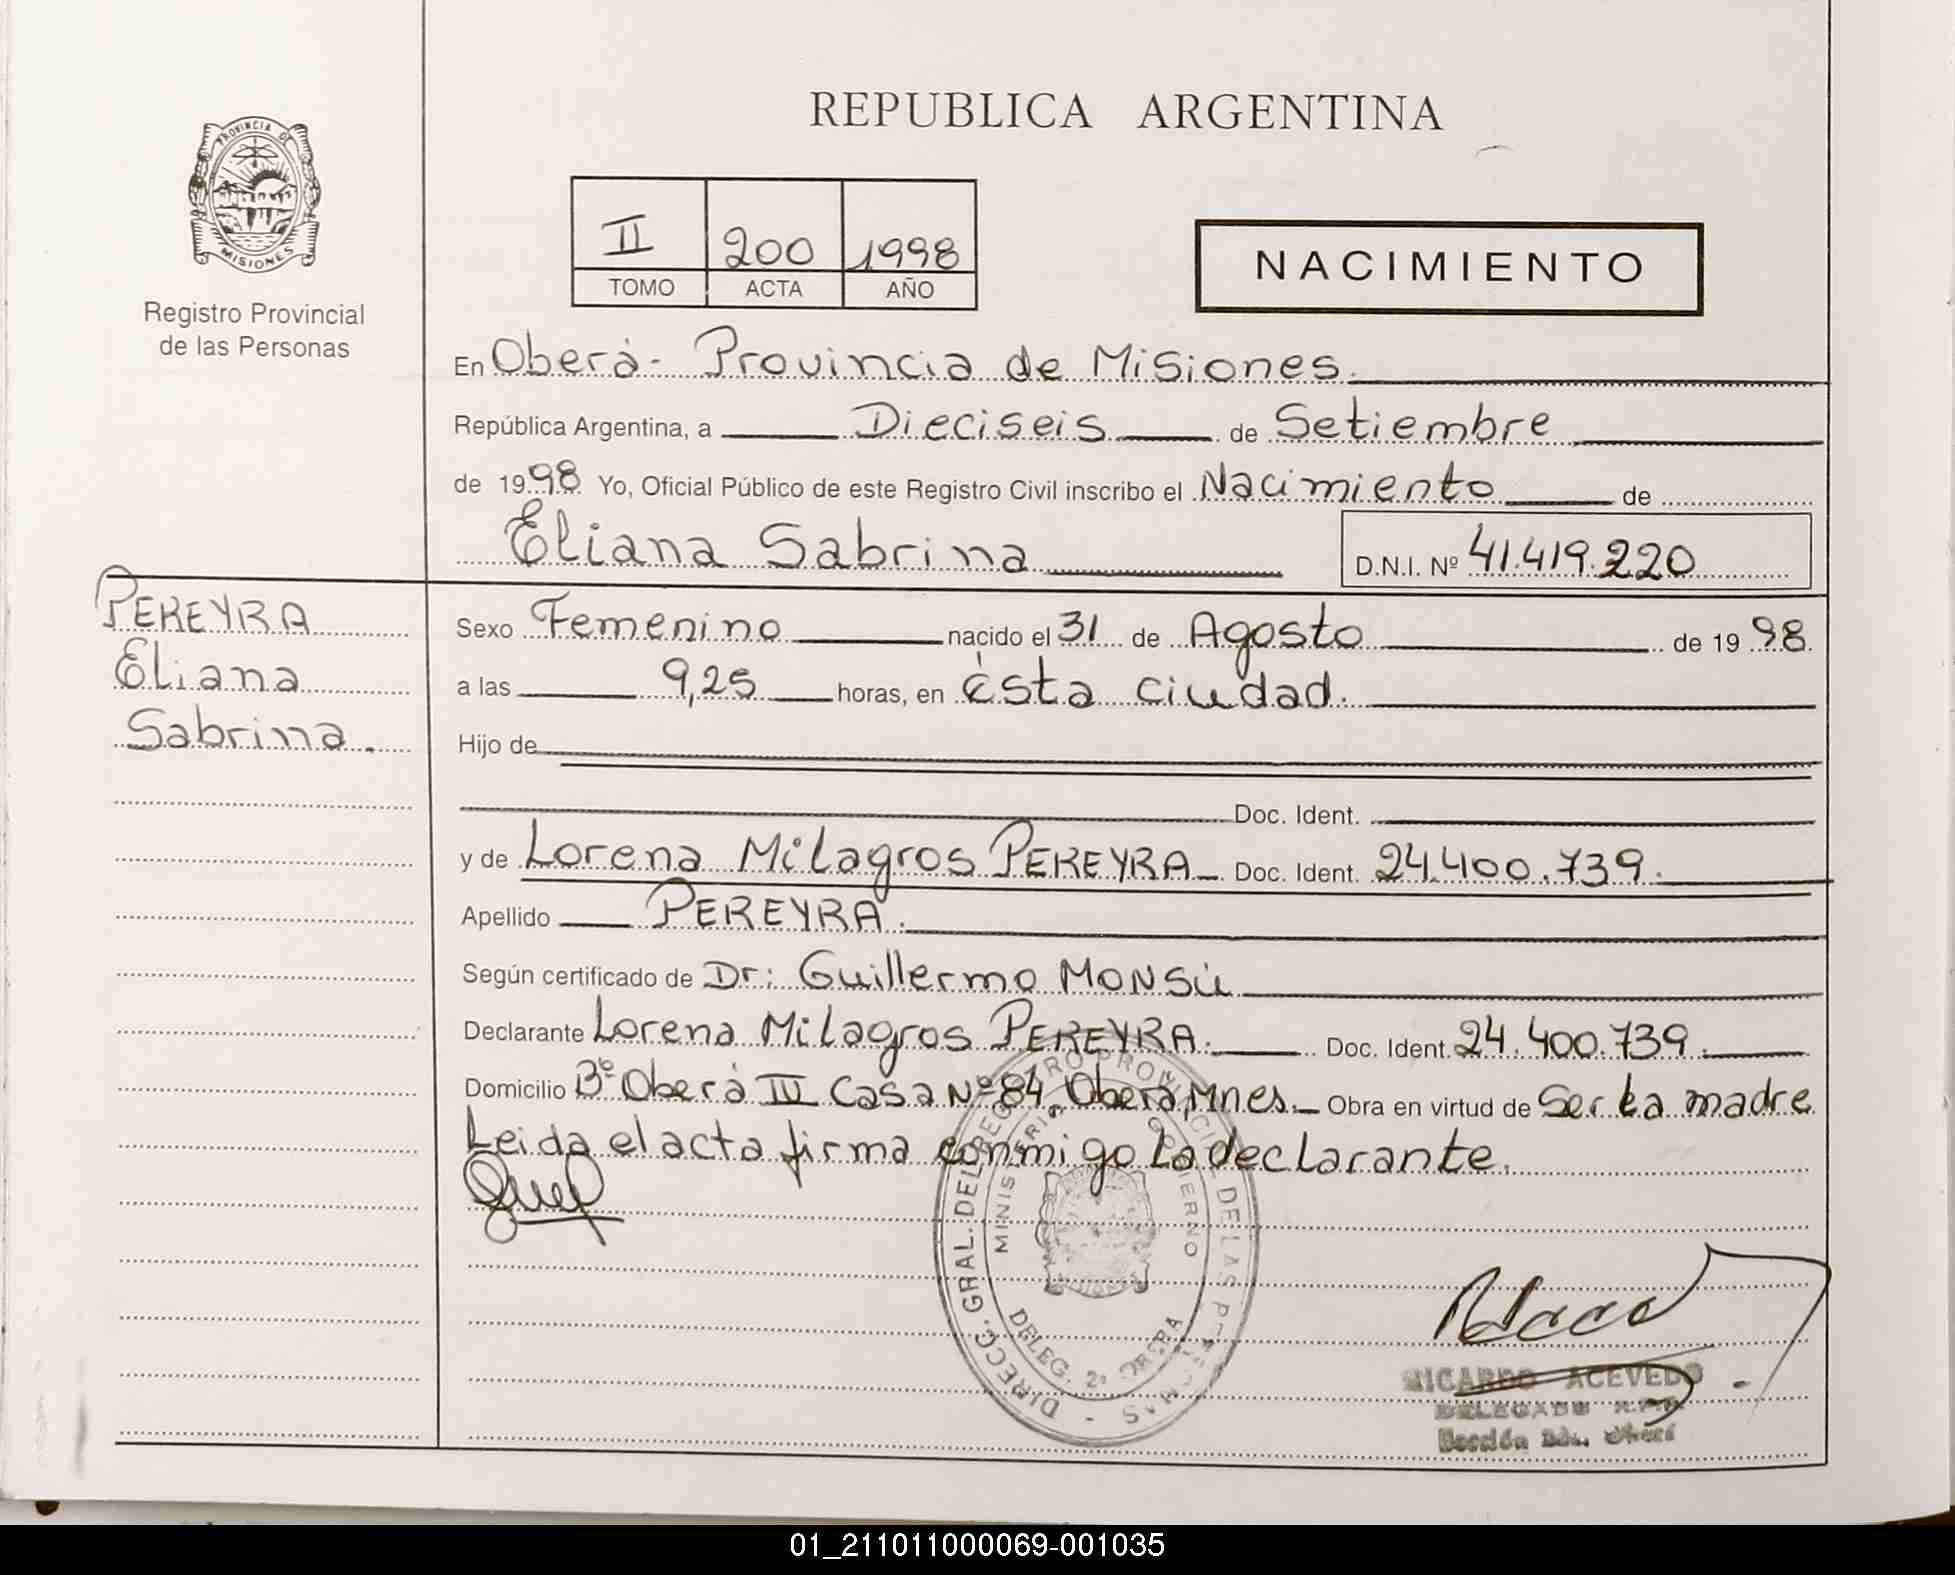 REPUBLICA ARGENTINA
PROVINCIA DE
MISIONES
Registro Provincial
de las Personas
II 200 1998
TOMO ACTA AÑO
NACIMIENTO
En Oberà - Provincia de Misiones.
República Argentina, a Dieciseis de Setiembre
de 1998 Yo, Oficial Público de este Registro Civil inscribo el Nacimiento de
Eliana Sabrina D.N.I. Nº 41.419.220
PEREYRA
Eliana
Sabrina.
Sexo Femenino nacido el 31 de Agosto de 1998
a las 9,25 horas, en èsta ciudad.
Hijo de
Doc. Ident.
y de Lorena Milagros PEREYRA Doc. Ident. 24.400.739.
Apellido PEREYRA.
Según certificado de Dr: Guillermo MONSÙ
Declarante Lorena Milagros PEREYRA. Doc. Ident. 24.400.739.
Domicilio Bº Oberà IV Casa Nº 84, Oberà, Mnes. Obra en virtud de Ser La madre
Leida el acta firma conmigo La declarante.
DIRECC. GRAL. DEL REGISTRO PROVINCIAL DE LAS PERSONAS
MINISTERIO GOBIERNO
DELEG. 2ª OBERA
RICARDO ACEVEDO
DELEGADO R.P.P.
Sección 2da. Oberá
01_211011000069-001035